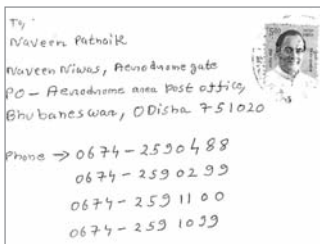 To,
Naveen Patnaik
Naveen Niwas, Aerodrome gate
PO - Aerodrome area post office,
Bhubaneswar, Odisha 751020
Phone → 0674-2590488
0674-2590299
0674-2591100
0674-2591099
500